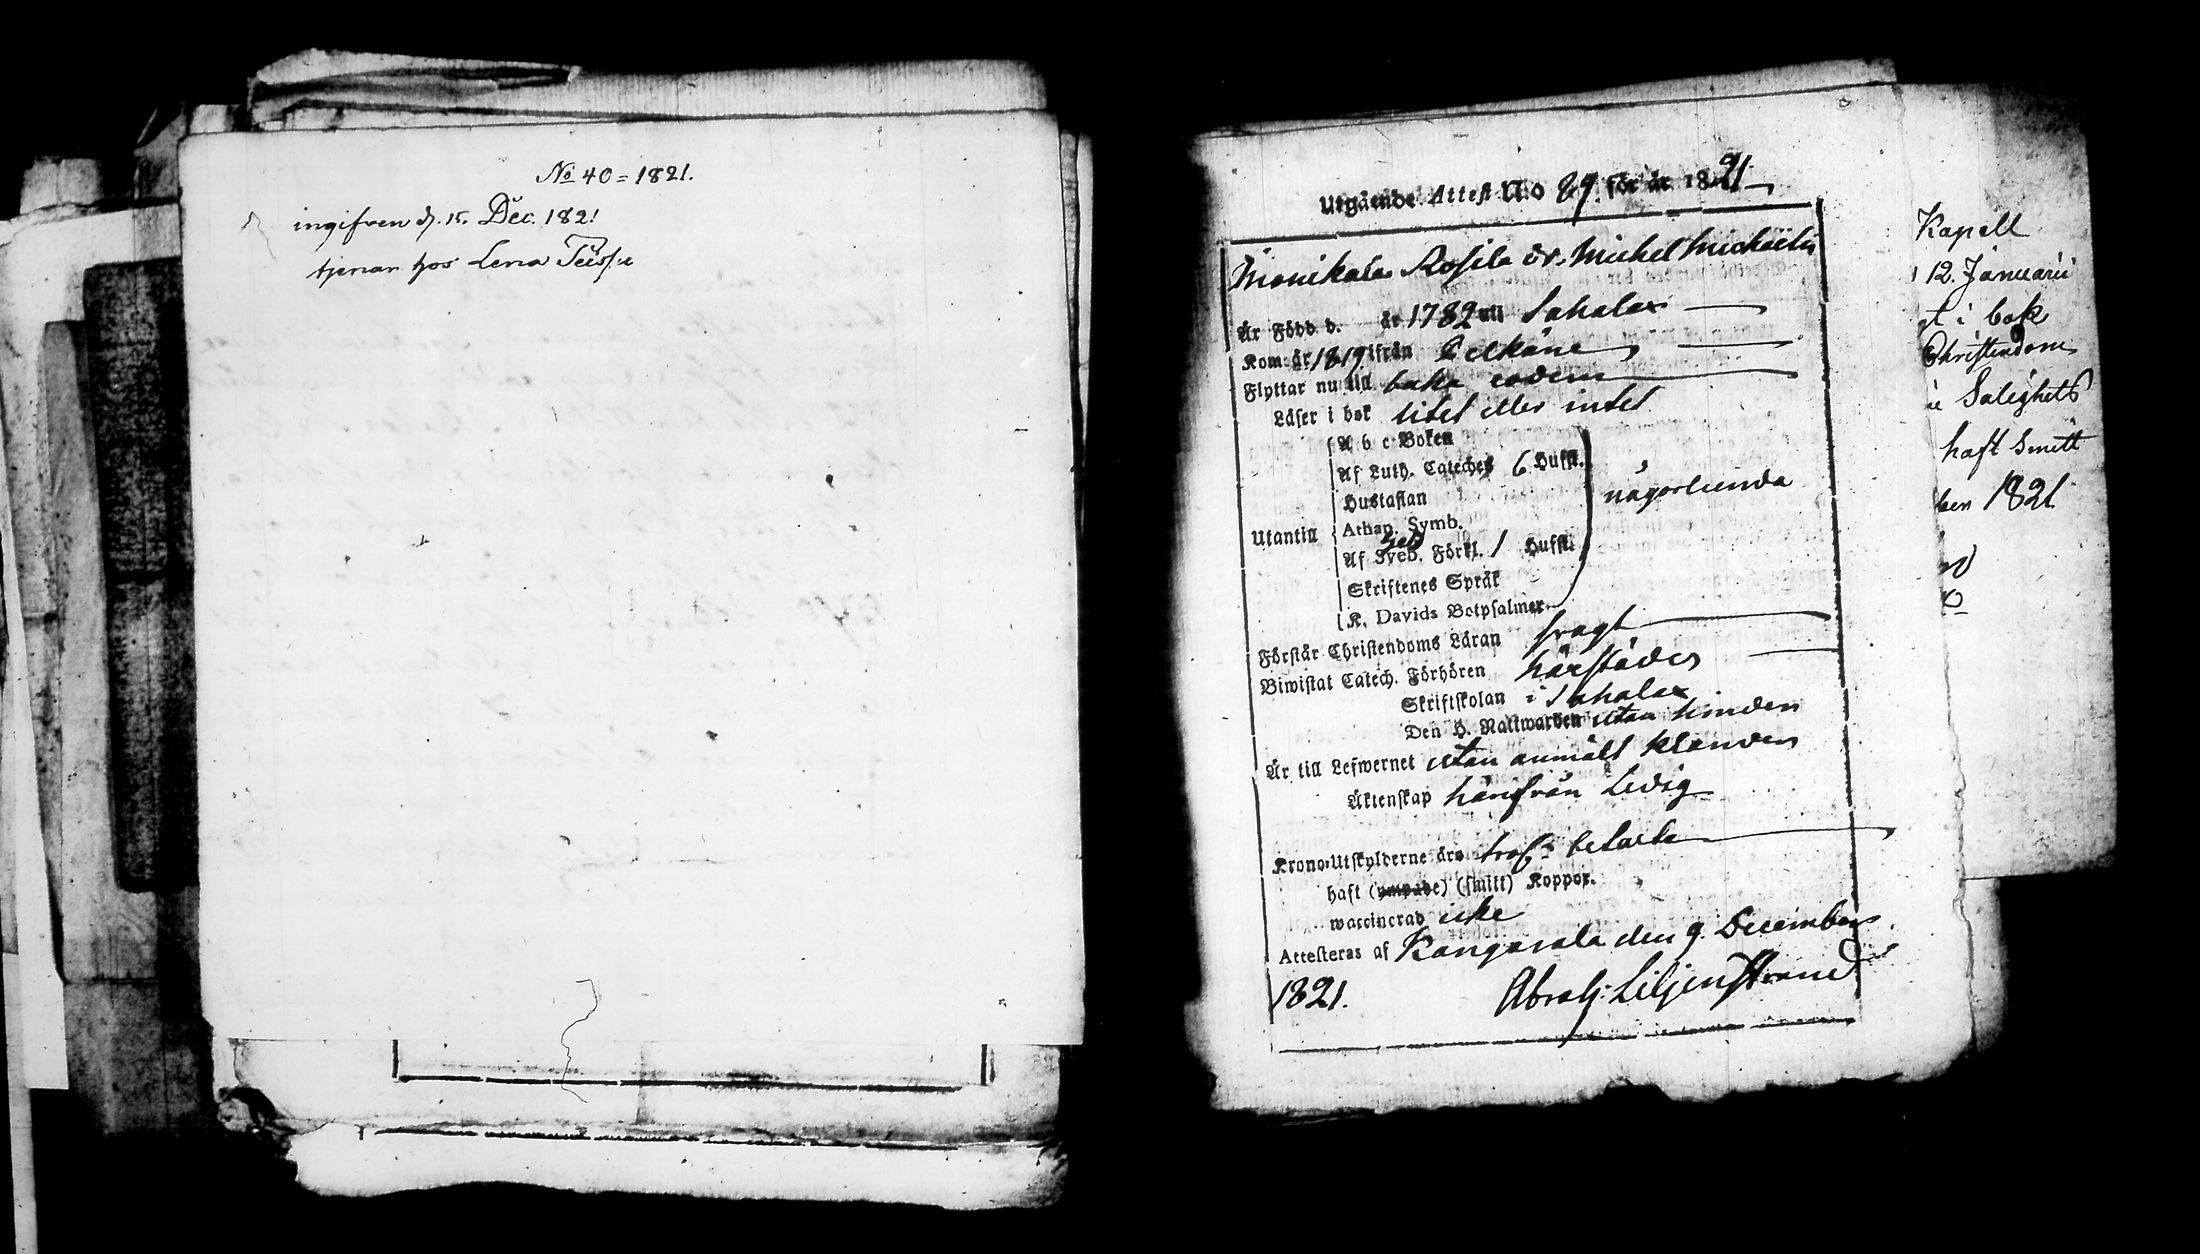 No 40 = 1821.
ingifven d. 15. Dec. 1821
tjenar hos Lena
Utgående Attest N:o 89. för år 1821
Monikala Rosila dr. Michel Michelss
Är Född d. år 1782 uti Sahalax
Kom år 1819 ifrån Pelkäne
Flyttar nu till baka eodem
Läser i bok litet eller intet
A b c Boken
Af Luth. Cateches 6 Hufst.
Hustaflan
någorlunda
Utantill
Athan. Symb.
Af Sveb. Förkl. 1 Hufst.
Skriftenes Språk
K. Davids Botpsalmer
Förstår Christendoms Läran svagt
Biwistat Catech. Förhören härstädes
Skriftskolan i Sahalax
Den H. Nattwarden utan hinder
Är till Lefwernet utan anmält klander
Äktenskap härifrån Ledig
Krono-Utskylderne äro betalta
haft (ympade) (smitt) Koppor.
waccinerad icke
Attesteras af Kangasala den 9. December
1821. Abrah: Liljenstrand
Kapell
12. Januarii
i bok
Christendoms
Salighets
haft Smitt
ber 1821